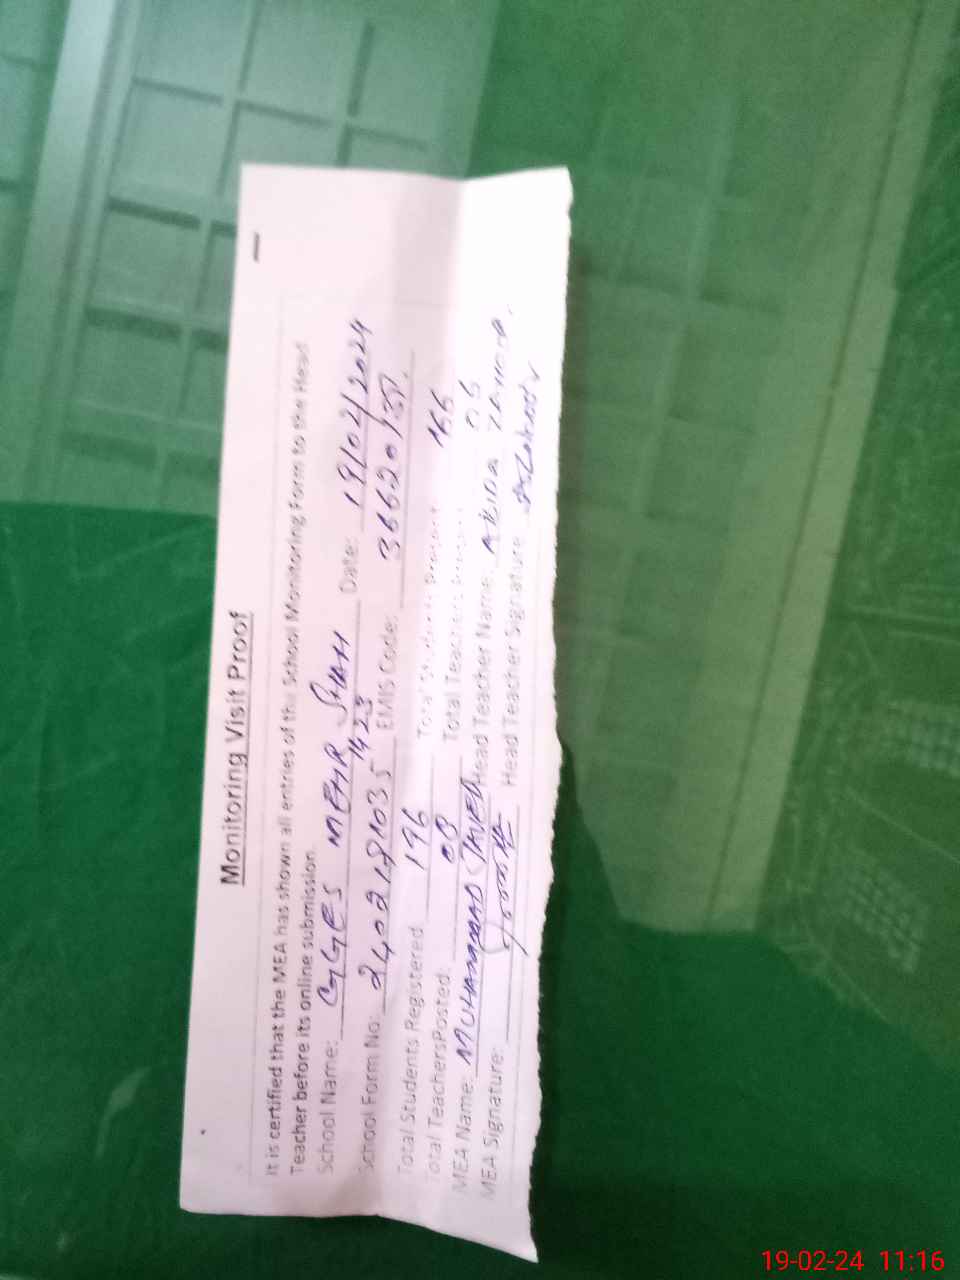 Monitoring Visit Proof
It is certified that the MEA has shown all entries of this School Monitoring Form to the Head
Teacher before its online submission.
School Name: GGES MEHR SHAH Date: 19/02/2024
School Form No: 2402191035 1423 EMIS Code:
Total Students Registered 196 Total Students Present 166
Total TeachersPosted: 08 Total Teachers Present 06
MEA Name: MUHAMMAD JAVED Head Teacher Name: ABIDA
MEA Signature: Head Teacher Signature
19-02-24 11:16